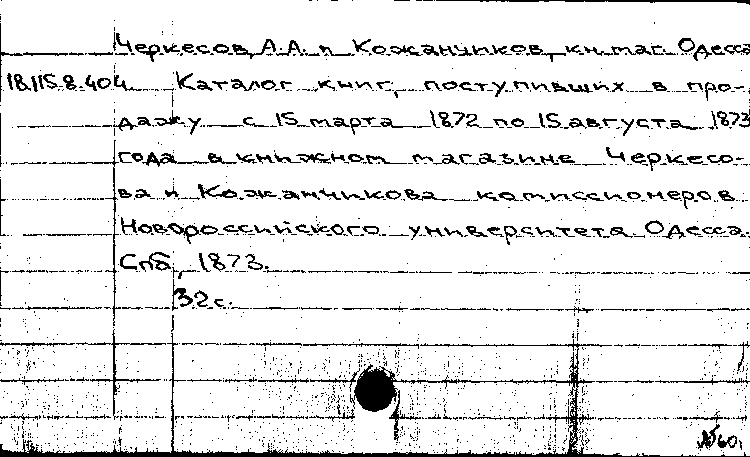 Черкесов, А.А. и Кожанчиков, кн. маг. Одесса
18.115.8.404. Каталог книг, поступивших в про-
дажу с 15 марта 1872 по 15 августа 1873
года в книжном магазине Черкесо-
ва и Кожанчикова комиссионеров
Новороссийского университета. Одесса.
Спб, 1873.
32 с.